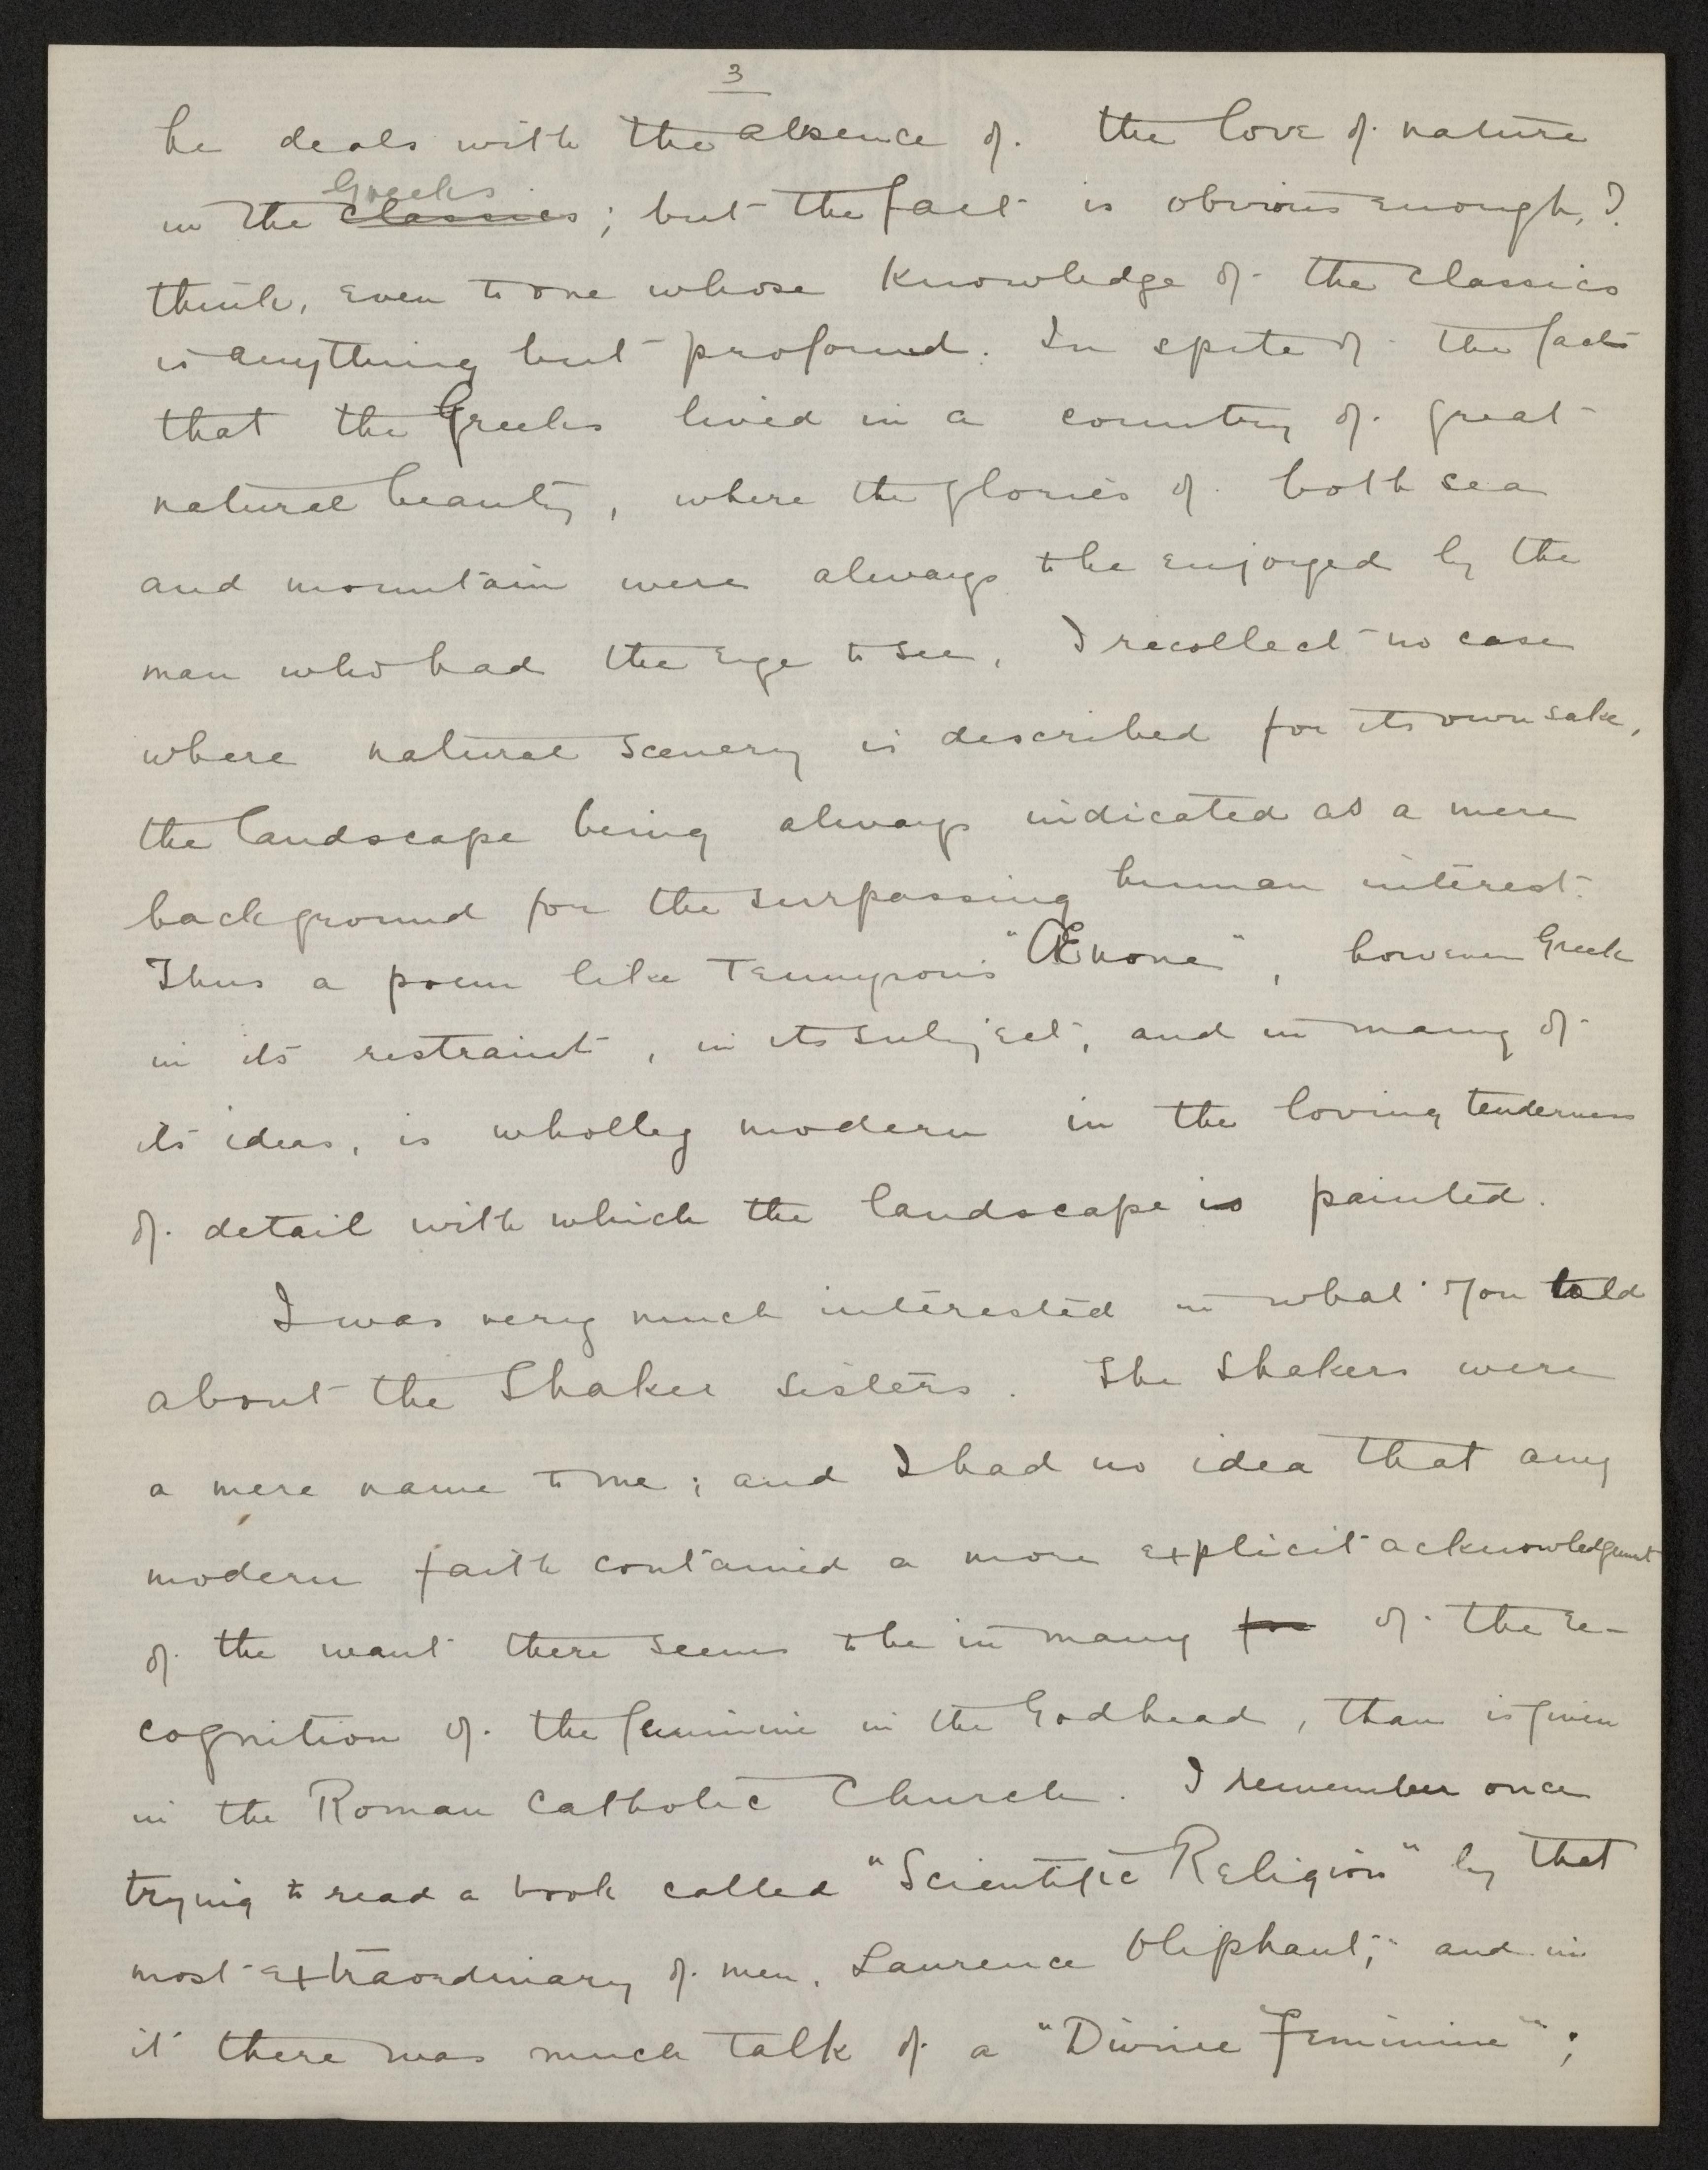 3
he deals with the absence of the love of nature
Greeks
in the classics; but the fact is obvious enough, I
think, even to one whose knowledge of the classics
is anything but profound. In spite of the fact
that the Greeks lived in a country of great
natural beauty, where the glories of both sea
and mountain were always to be enjoyed by the
man who had the eye to see, I recollect no case
where natural scenery is described for its own sake,
the landscape being always indicated as a mere
background for the surpassing human interest.
Thus a poem like Tennyson's "Œnone", however Greek
in its restraint, in its subject, and in many of
its ideas, is wholly modern in the loving tenderness
of detail with which the landscape is painted.
I was very much interested in what you told
about the Shaker sisters. The Shakers were
a mere name to me; and I had no idea that any
modern faith contained a more explicit acknowledgment
of the want there seems to be in many for of the re-
cognition of the feminine in the Godhead, than is given
in the Roman Catholic Church. I remember once
trying to read a book called "Scientific Religion" by that
most extraordinary of men, Laurence Oliphant; and in
it there was much talk of a "Divine Feminine";